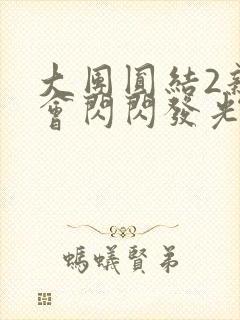 大团圓結2新
會閃閃發光
螞蟻賢弟